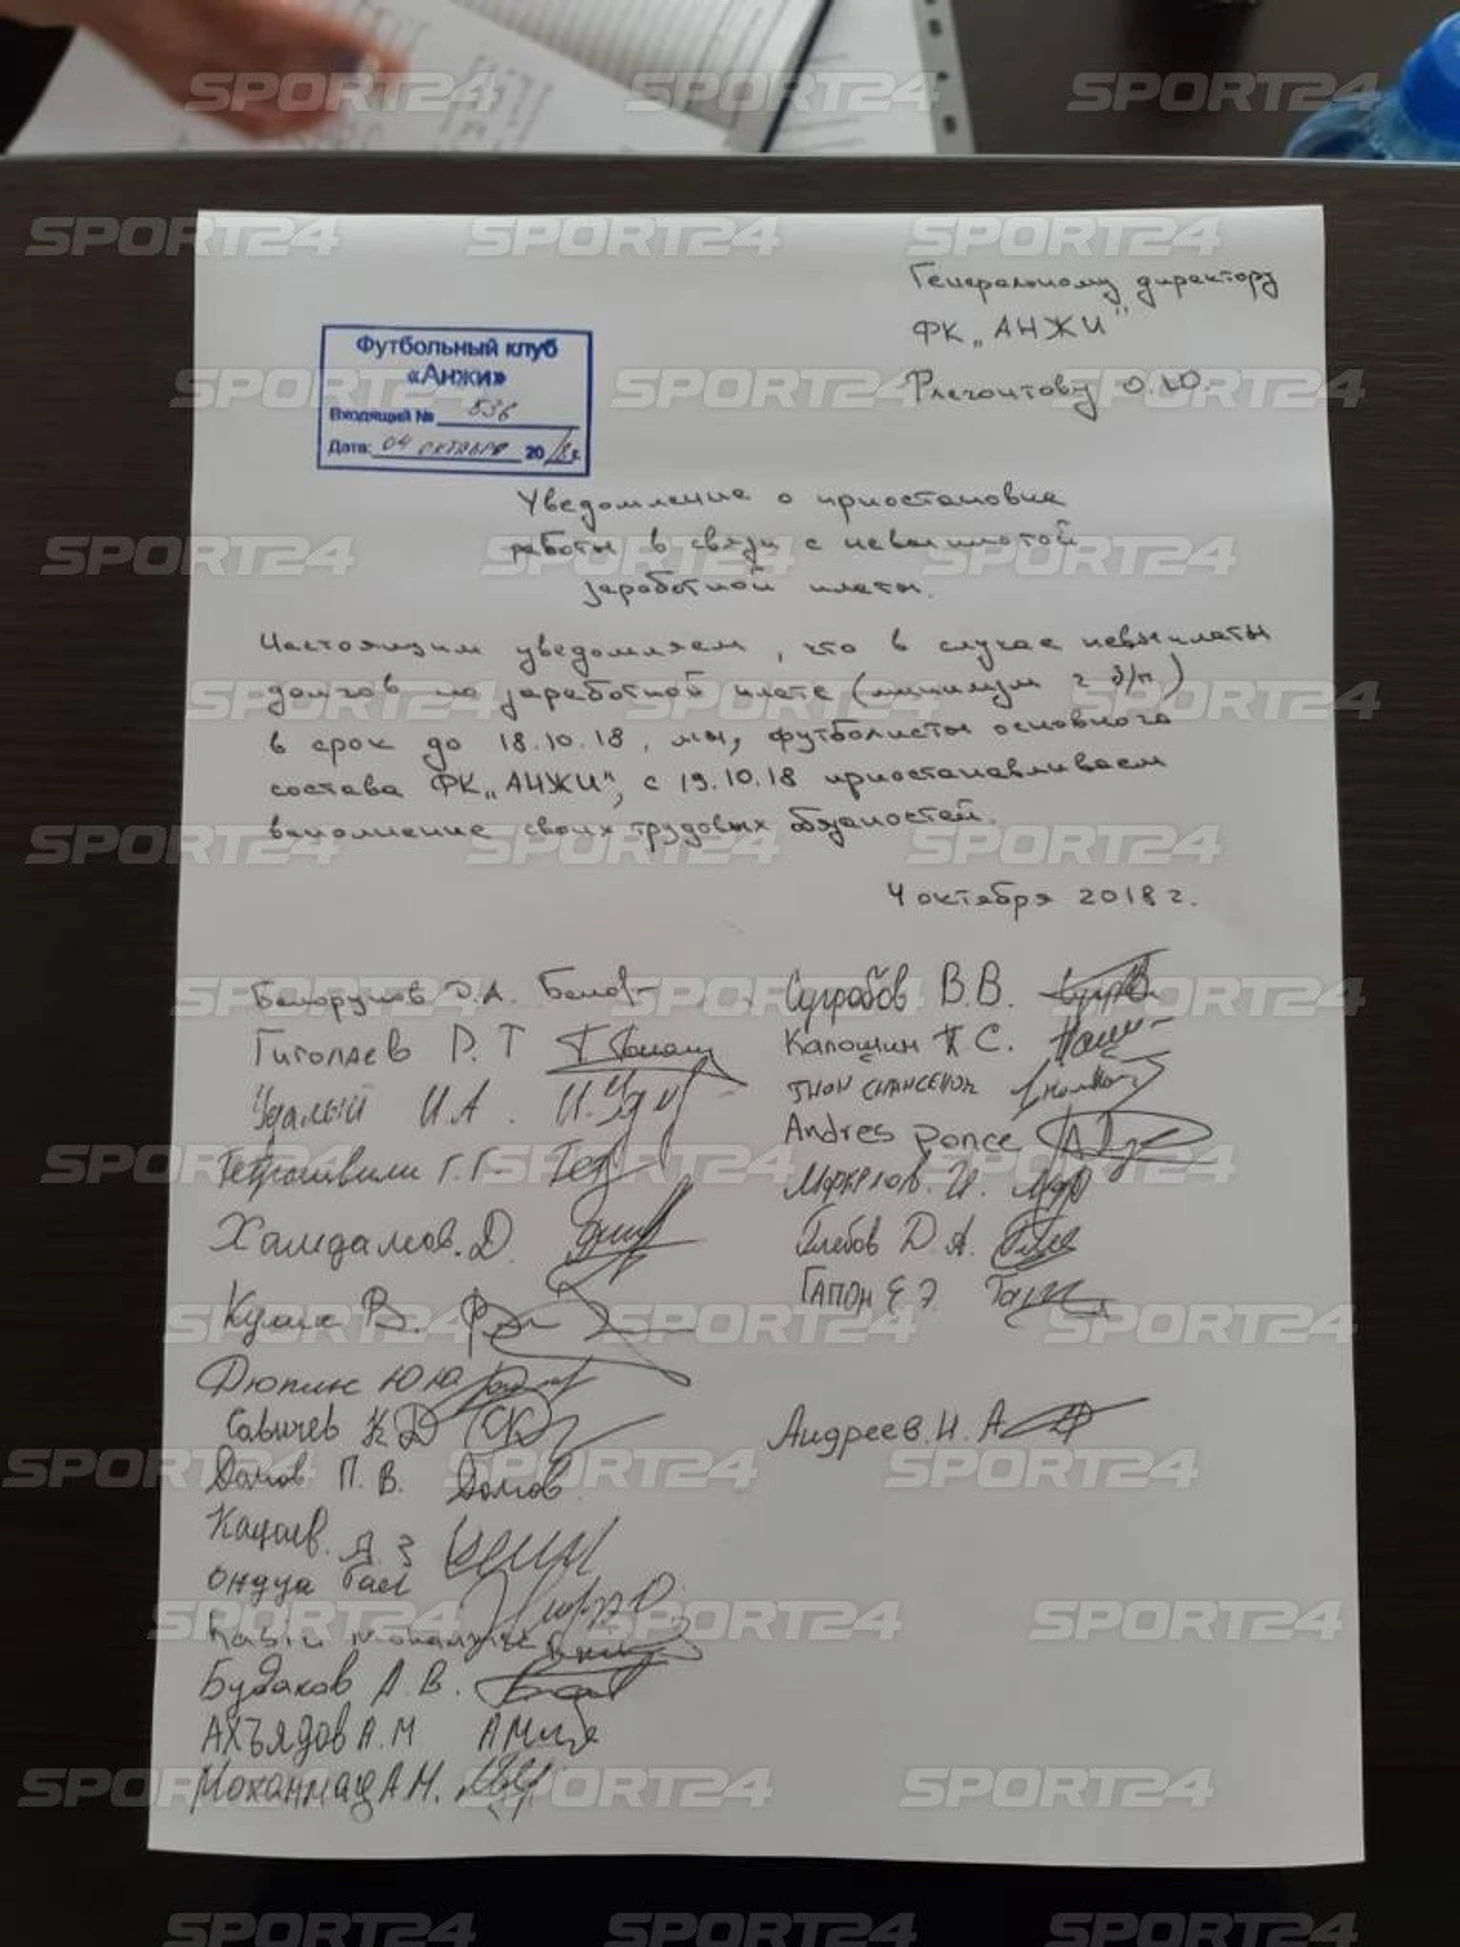 Генеральному директору
ФК „АНЖИ"
Флегонтову О.Ю.
Футбольный клуб
«Анжи»
Входящий № 536
Дата: 04 октября 2018 г.
Уведомление о приостановке
работы в связи с невыплатой
заработной платы.
Настоящим уведомляем, что в случае невыплаты
долгов по заработной плате (минимум 2 з/п)
в срок до 18.10.18, мы, футболисты основного
состава ФК „АНЖИ", с 19.10.18 приостанавливаем
выполнение своих трудовых обязаностей.
4 октября 2018 г.
Белоруков Д.А.
Гиголаев Г. Т
Удалый И.А.
Тетрашвили Г.Г.
Хамдамов. Д.
Кулик В.
Дюпин Ю Ю
Савичев К Д
Долгов П. В. Долгов
Кацаев. А. З
Ондуа Гаел
Будаков А. В.
АХЪЯДОВ А. М
Моханмад А.М.
Сугробов В.В.
Капошин П С.
Andres Ponce
Маркелов. И.
Глебов Д. А.
ГАПОН Е Э
Андреев. И. А
SPORT24